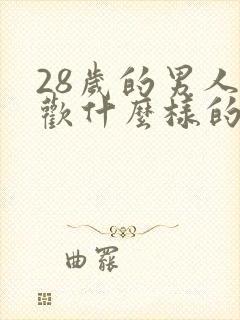 28歲的男人
歡什麼樣的
曲羆